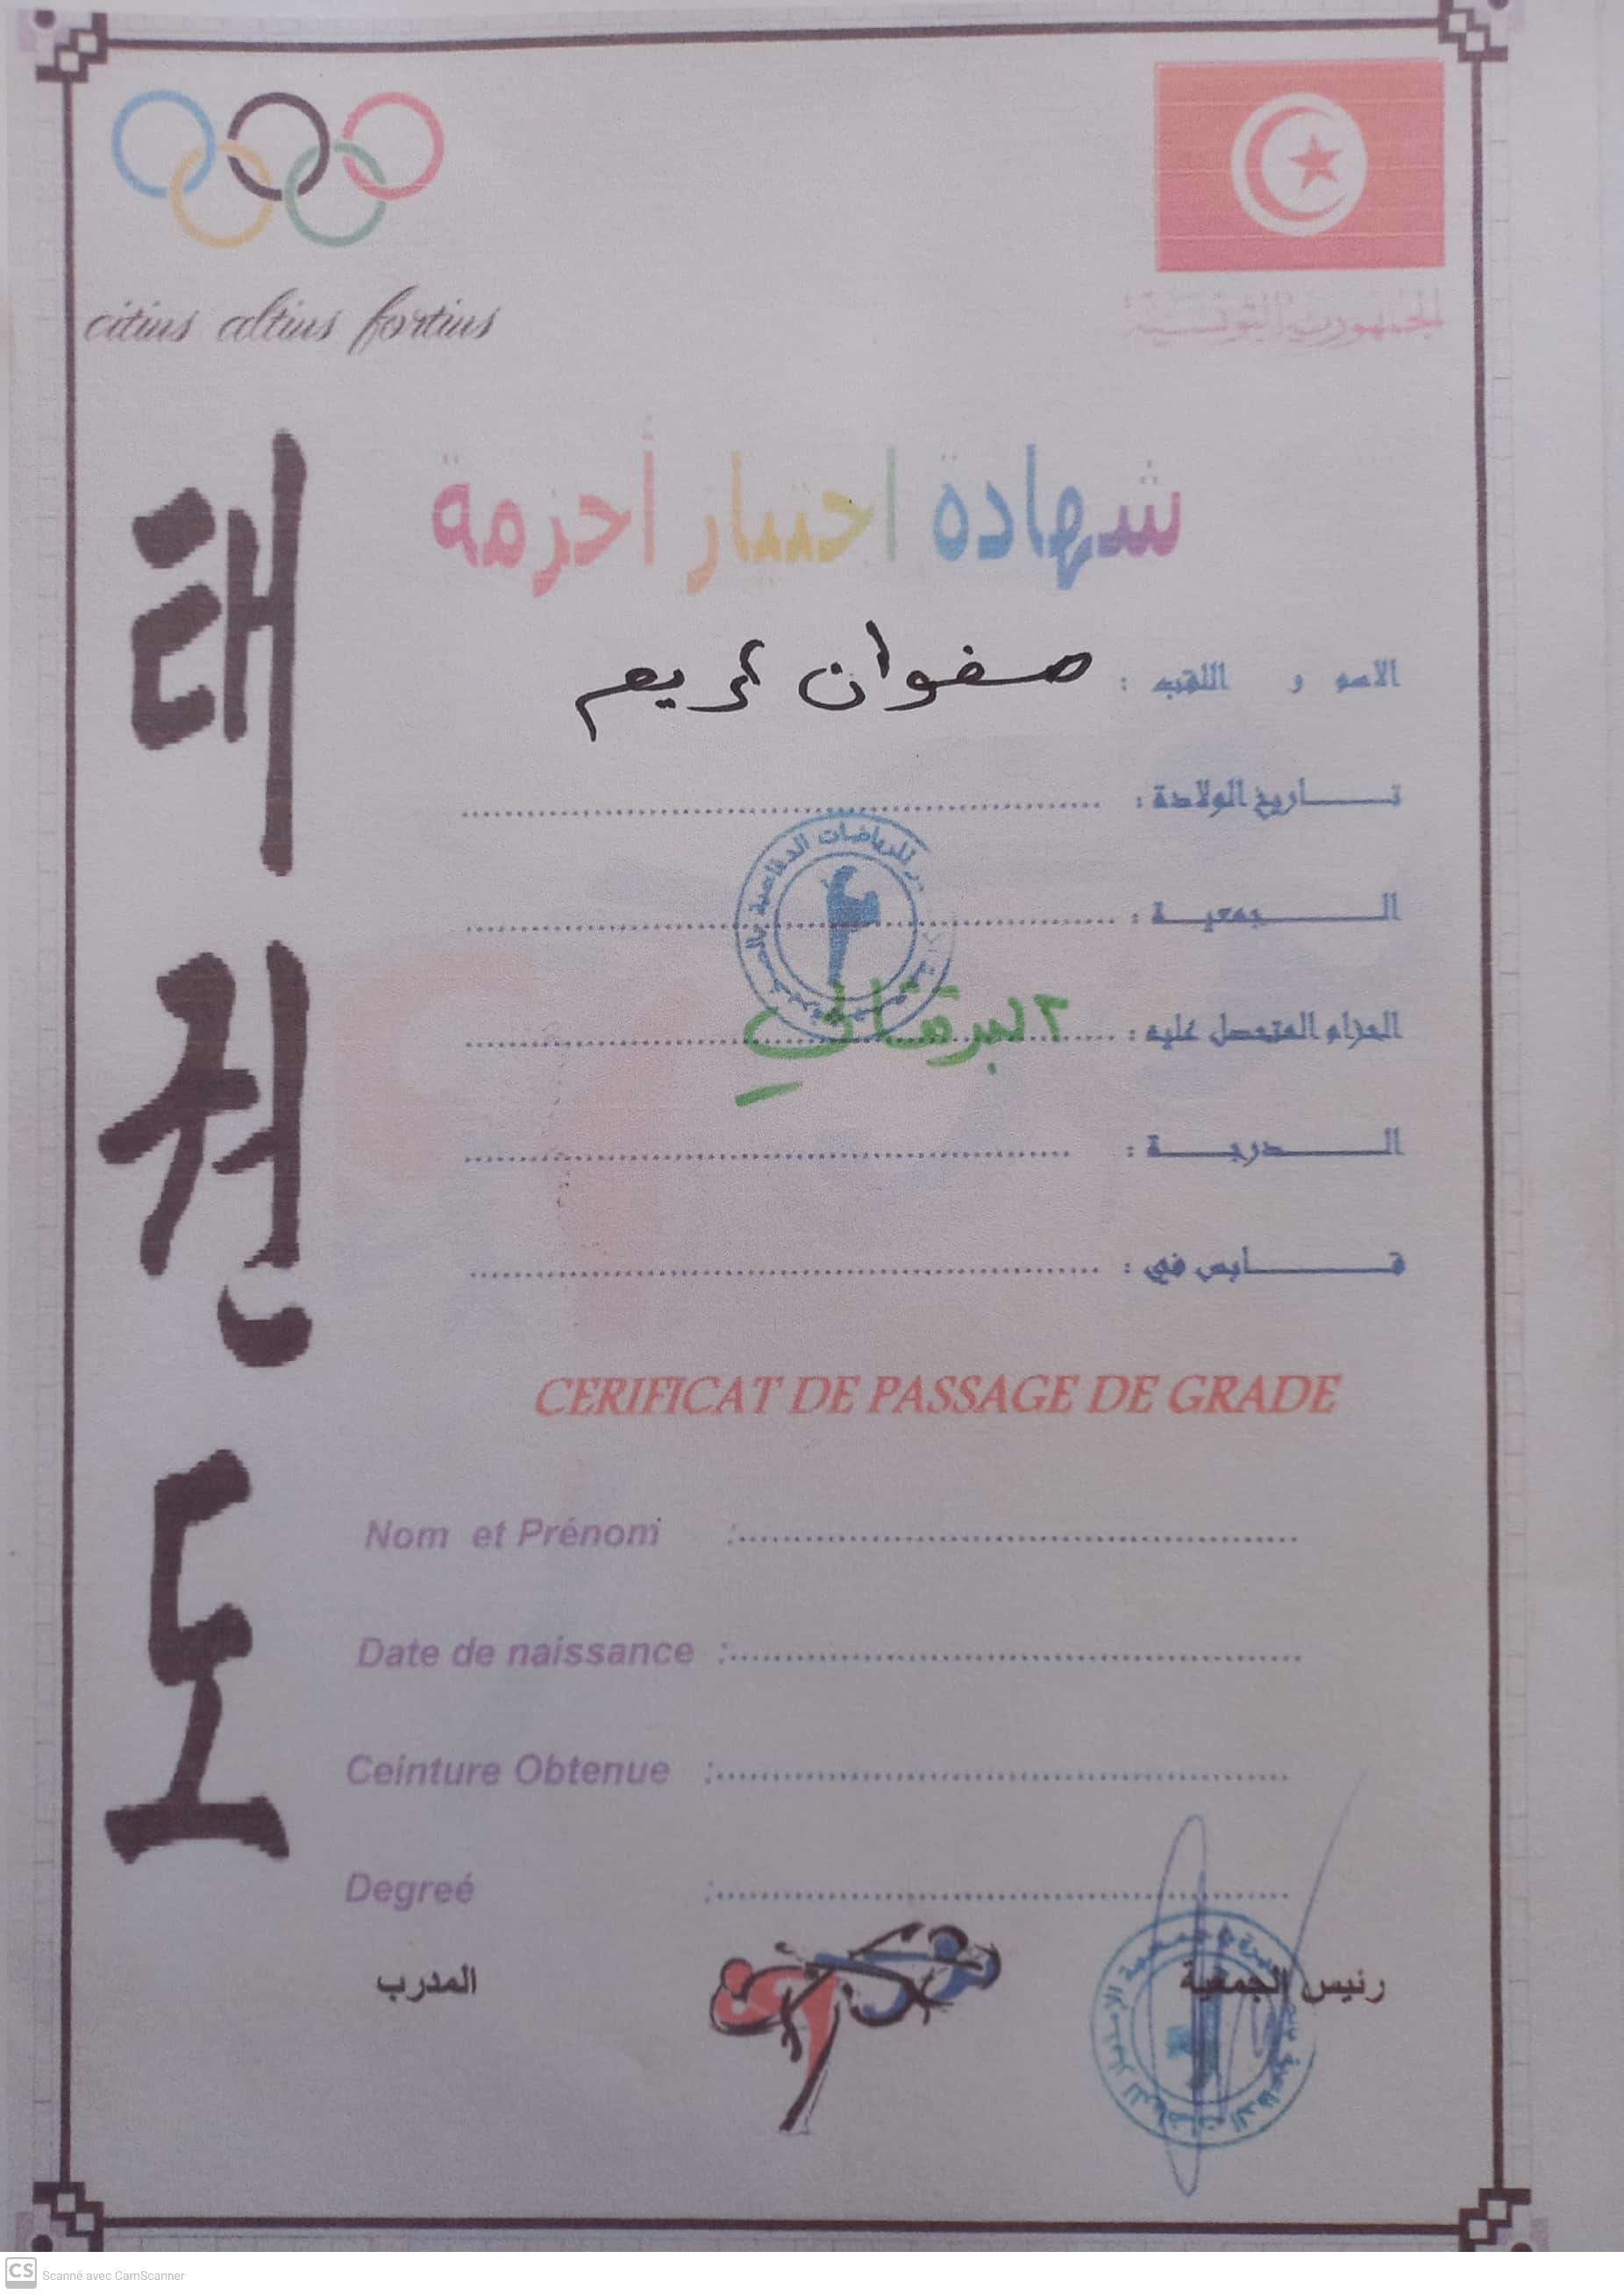 citius altius fortius
الجمهورية التونسية
شهادة اختبار أحزمة
الاسم و اللقب : صفوان
تـــاريخ الولادة :
الـــجمعيـة :
الحزام المتحصل عليه : البرتقالي
الـــدرجـــة :
قـــابس في :
태권도
CERIFICAT DE PASSAGE DE GRADE
Nom et Prénom :
Date de naissance :
Ceinture Obtenue :
Degreé :
رئيس الجمعية
المدرب
للرياضات الدفاعية
CS Scanné avec CamScanner